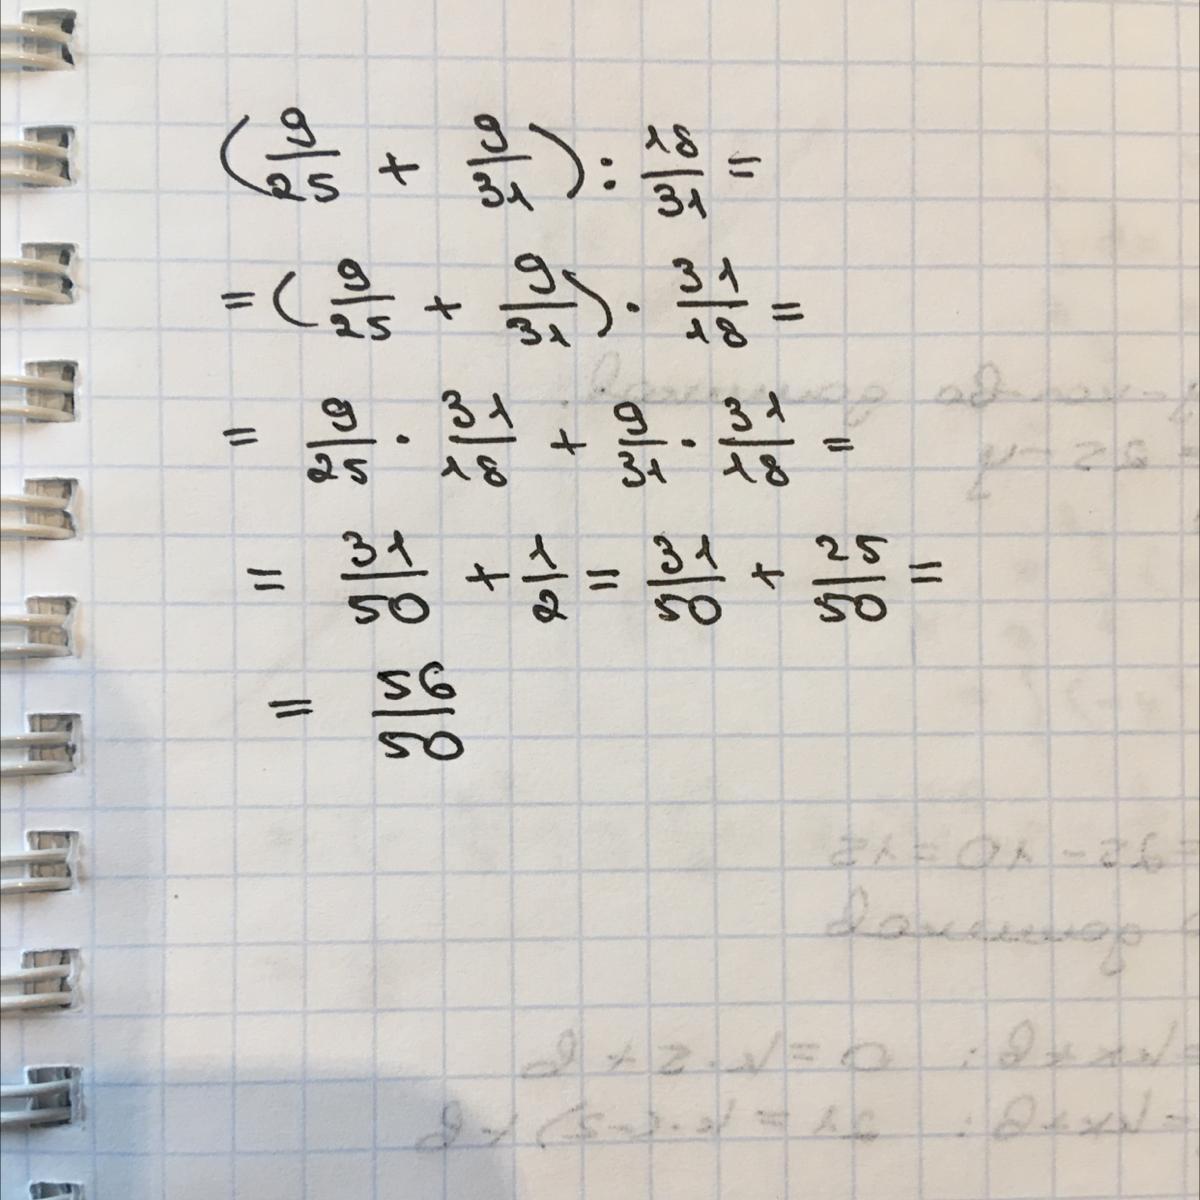 (9/25 + 9/31) : 18/31 =
= (9/25 + 9/31) · 31/18 =
= 9/25 · 31/18 + 9/31 · 31/18 =
= 31/50 + 1/2 = 31/50 + 25/50 =
= 56/50